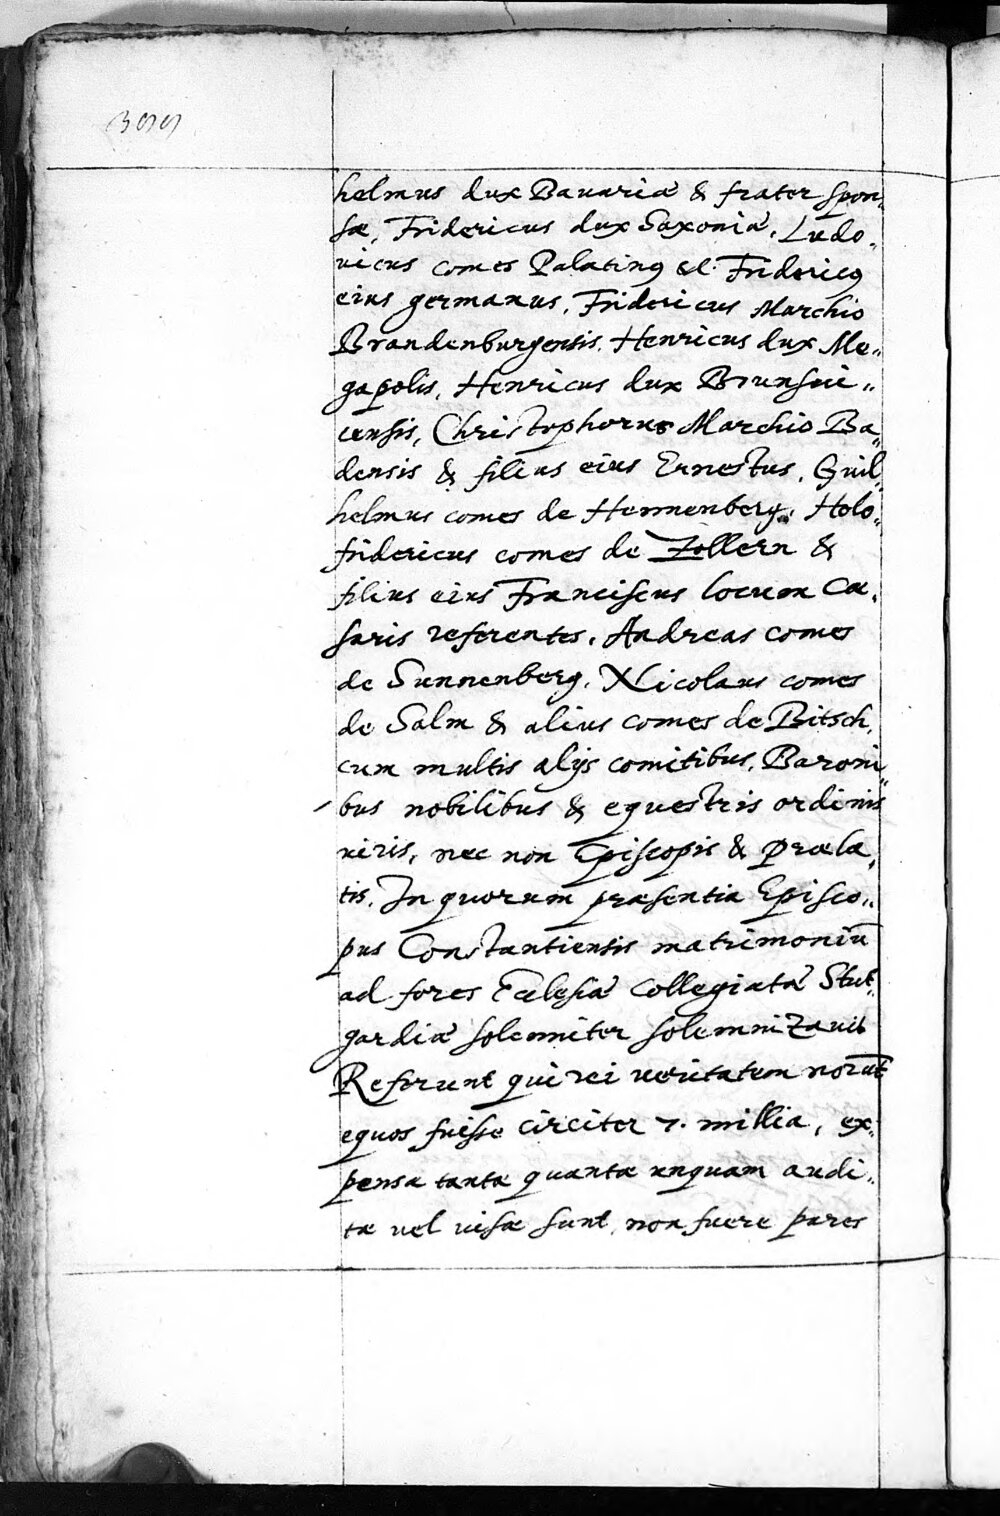 399
helmus dux Bavariæ & frater spon„
sæ, Fridericus dux Saxoniæ, Ludo„
vicus comes Palatinꝰ &c. Fridericꝰ
eius germanus, Fridericus Marchio
Brandenburgensis. Henricus dux Me„
gapolis, Henricus dux Brunsui„
censis, Christophorus Marchio Ba„
densis & filius eius Ernestus, Guil„
helmus comes de Hennenberg, Holo„
fridericus comes de Zollern &
filius eius Franciscus locum Cæ„
saris referentes, Andreas comes
de Sunnenberg, Nicolaus comes
de Salm & alius comes de Bitsch,
cum multis alijs comitibus, Baroni„
bus nobilibus & equestris ordinis
viris, nec non Episcopis & præla„
tis, In quorum præsentia Episco„
pus Constantiensis matrimoniū
ad fores Ecclesiæ Collegiatæ Stut„
gardiæ solenniter solemnizavit
Referunt qui rei veritatem norūt
equos fuisse circiter 7. millia, ex„
pensa tanta quanta unquam audi„
tæ vel visæ sunt, non fuere pares